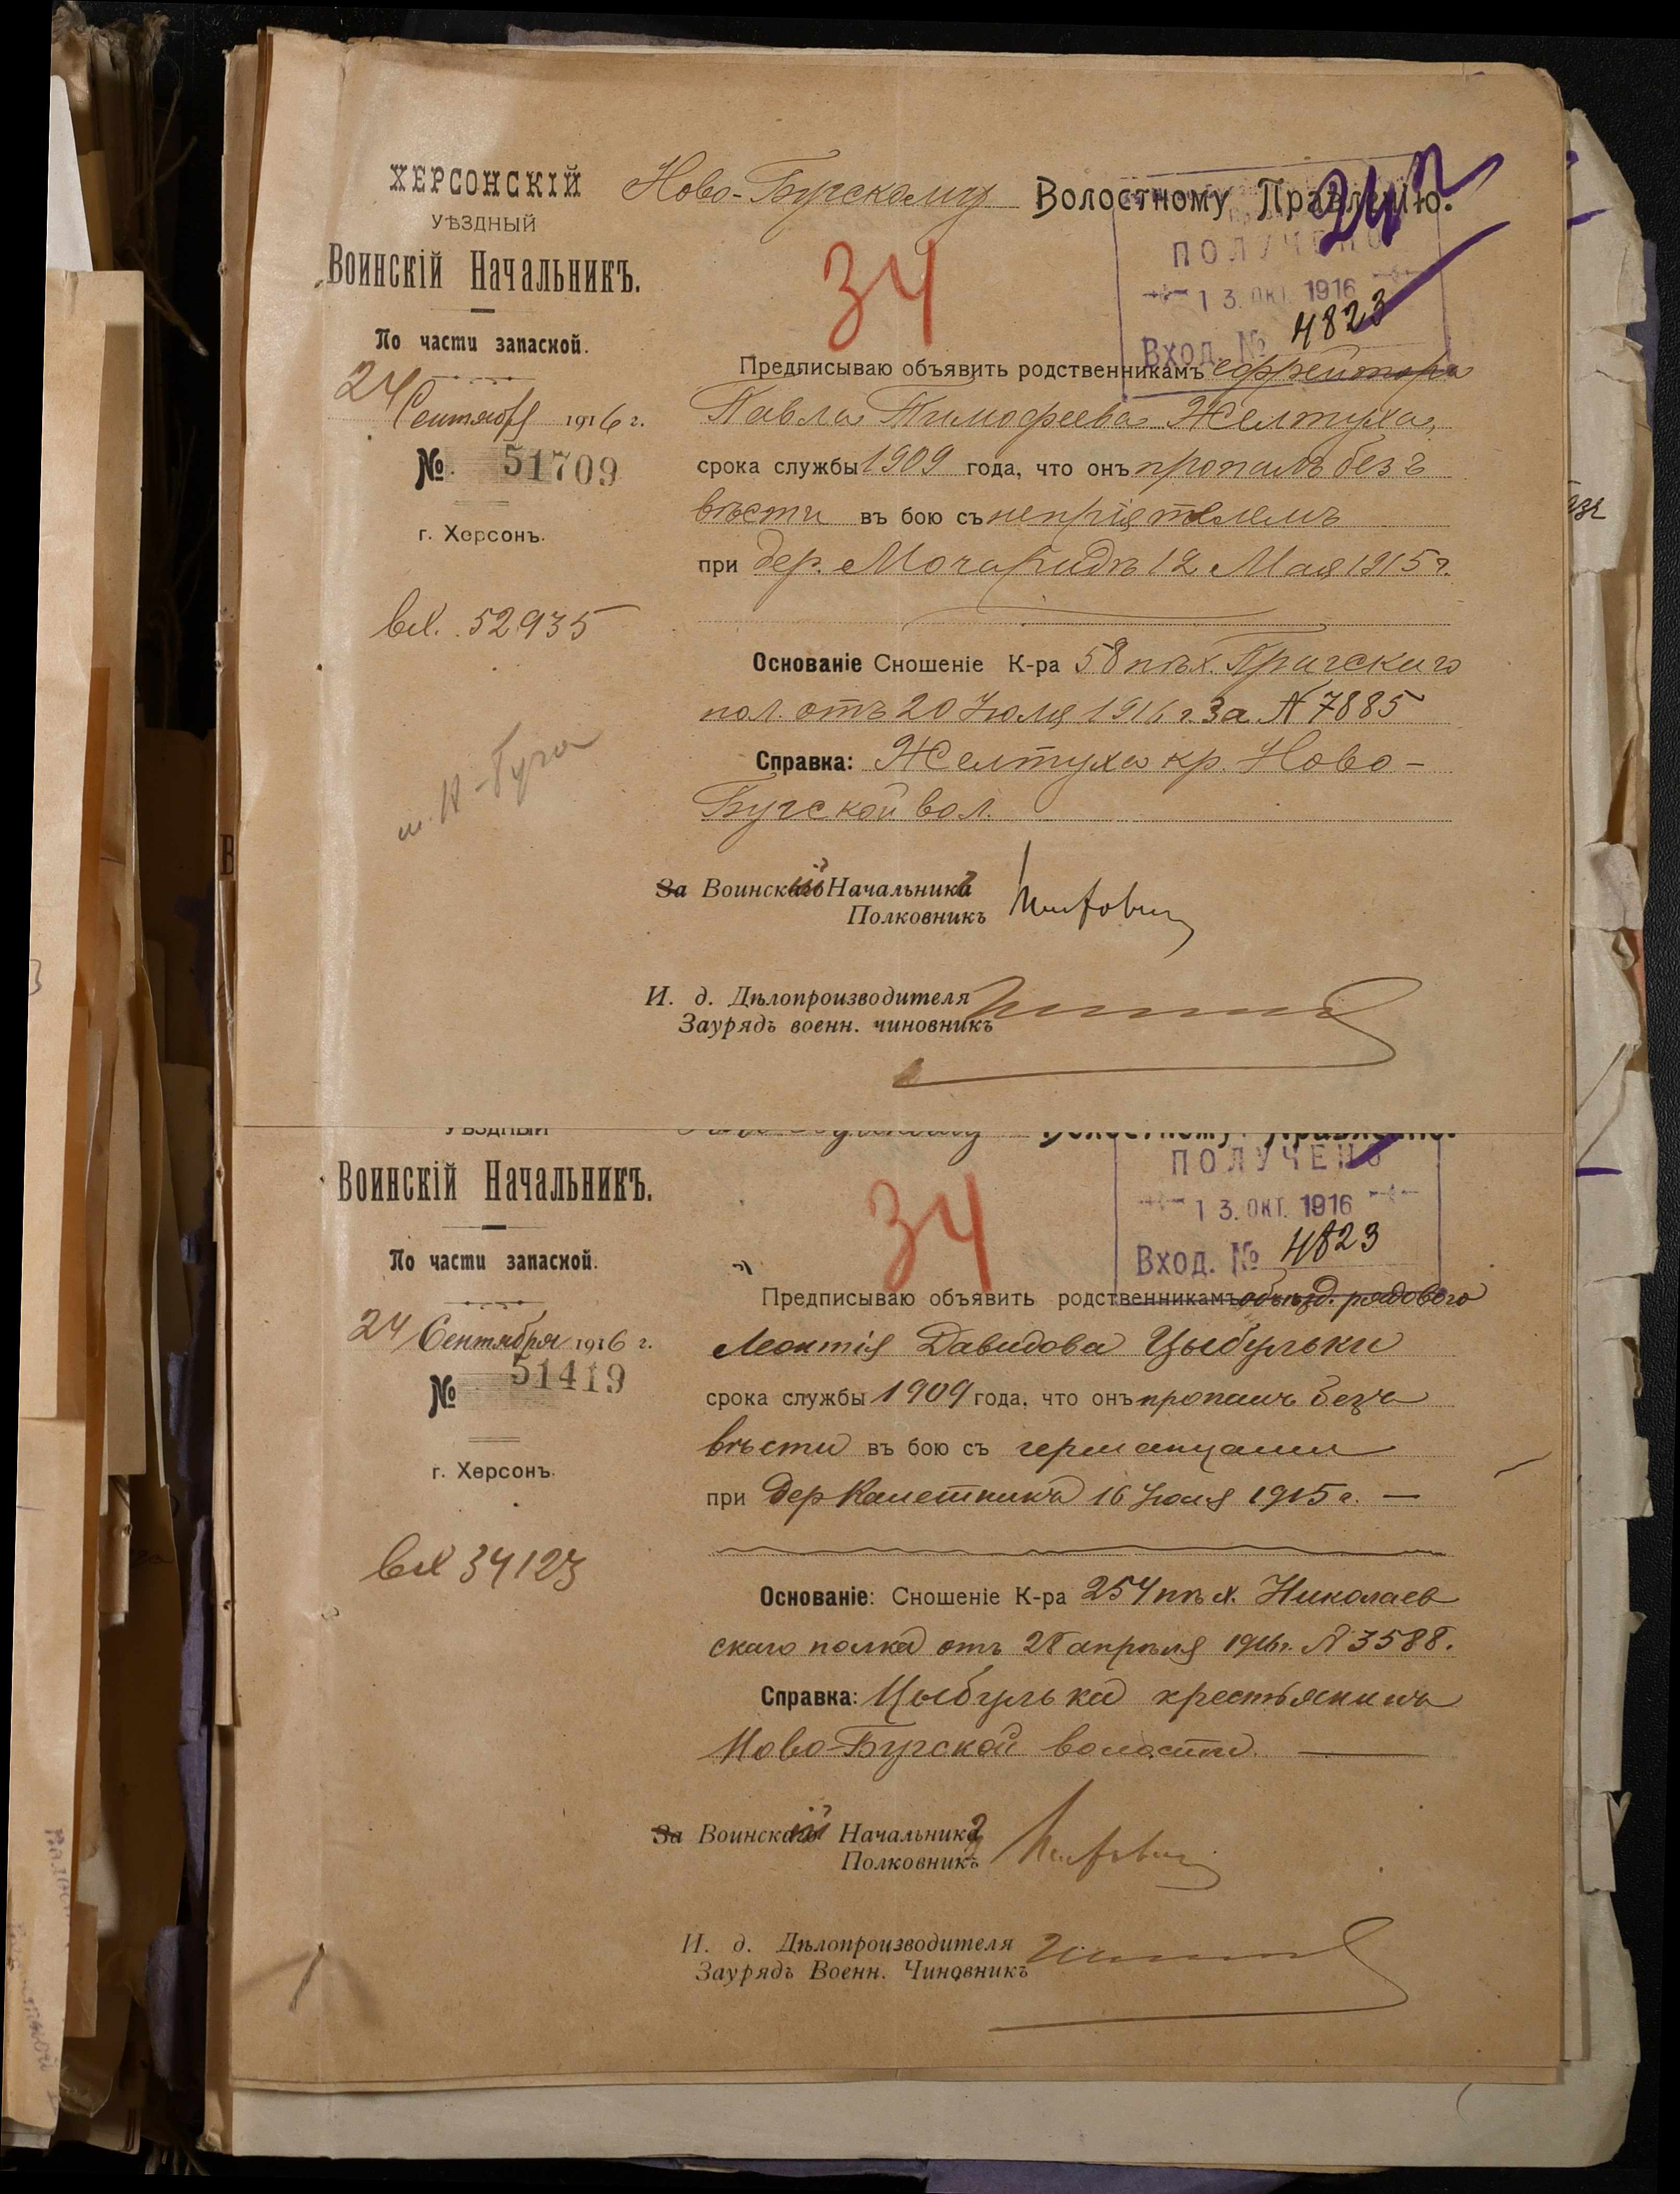 ХЕРСОНСКІЙ
УѢЗДНЫЙ
ВОИНСКІЙ НАЧАЛЬНИКЪ.
По части запасной.
24 Сентября 1916 г.
№ 51709
г. Херсонъ.
вх. 52935
Ново-Бугскому Волостному Правленію.
34
ПОЛУЧЕНО
13. ОКТ. 1916
Вход. № 4823
Предписываю объявить родственникамъ ефрейтора
Павла Тимофеева Желтуха,
срока службы 1909 года, что онъ пропалъ безъ
вѣсти въ бою съ непріятелемъ
при дер. 12 Мая 1915 г.
Основаніе Сношеніе К-ра 58 пѣх. Прагскаго
пол. отъ 20 Іюля 1916 г. За № 7885
Справка: Желтуха кр. Ново-
Бугской вол.
За Воинскій Начальникъ
Полковникъ
И. д. Дѣлопроизводителя
Заурядъ военн. чиновникъ
УѢЗДНЫЙ
Волостному Правленію.
ВОИНСКІЙ НАЧАЛЬНИКЪ.
По части запасной.
24 Сентября 1916 г.
№ 51419
г. Херсонъ.
вх 34123
34
ПОЛУЧЕНО
13. ОКТ. 1916
Вход. № 4823
Предписываю объявить родственникамъ рядового
Леонтія Давидова Цыбульки
срока службы 1909 года, что онъ пропалъ безъ
вѣсти въ бою съ германцами
при дер 16 1915 г. —
Основаніе: Сношеніе К-ра 254 пѣх. Николаев
скаго полка отъ апрѣля 1916 г. № 3588.
Справка: Цыбулька крестьянинъ
Ново-Бугской волости.
За Воинскій Начальникъ
Полковникъ
И. д. Дѣлопроизводителя
Заурядъ Военн. Чиновникъ